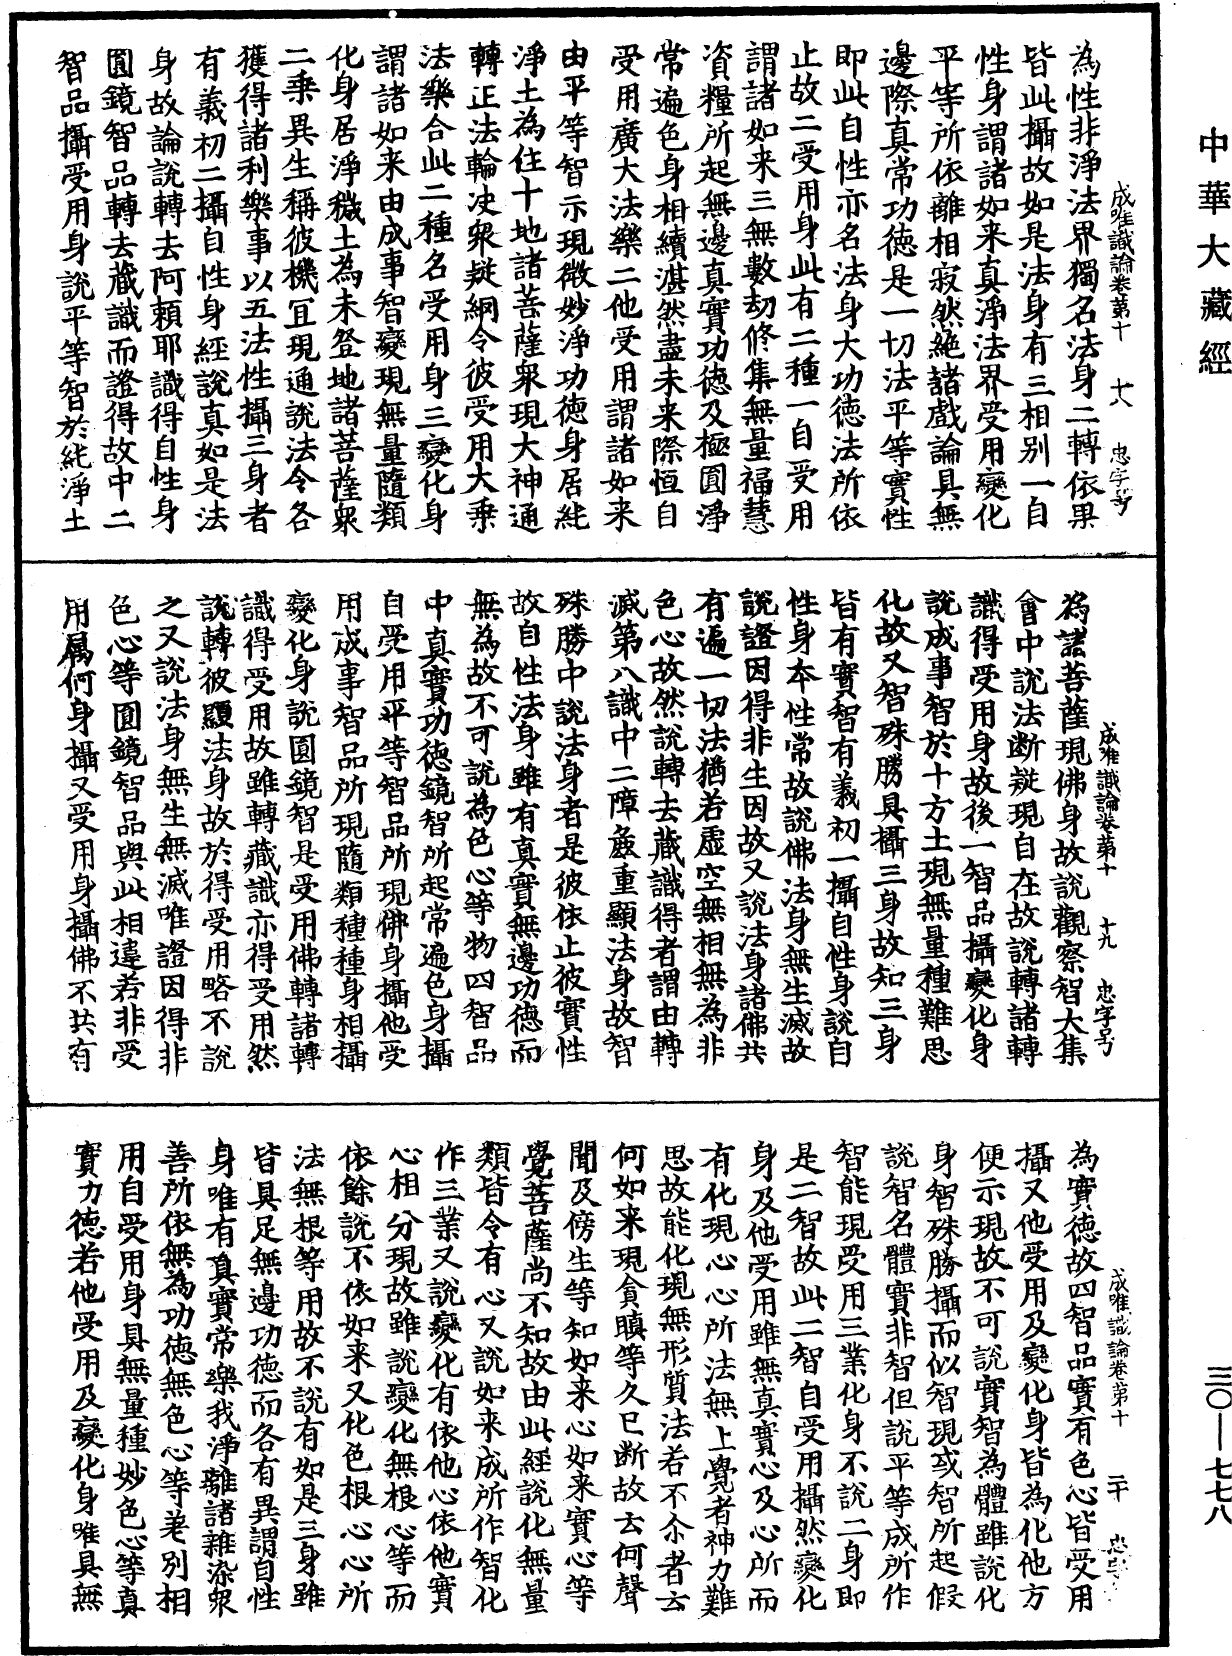 中華大藏經
成唯識論卷第十　十八　忠字号
為性非淨法界獨名法身二轉依果
皆此攝故如是法身有三相別一自
性身謂諸如来真淨法界受用變化
平等所依離相寂然絶諸戲論具無
邊際真常功徳是一切法平等實性
即此自性亦名法身大功徳法所依
止故二受用身此有二種一自受用
謂諸如来三無數劫修集無量福慧
資糧所起無邊真實功徳及極圓淨
常遍色身相續湛然盡未来際恒自
受用廣大法樂二他受用謂諸如来
由平等智示現微妙淨功徳身居純
淨土為住十地諸菩薩衆現大神通
轉正法輪决衆疑網令彼受用大乗
法樂合此二種名受用身三變化身
謂諸如来由成事智變現無量隨類
化身居淨穢土為未登地諸菩薩衆
二乗異生稱彼機冝現通說法令各
獲得諸利樂事以五法性攝三身者
有義初二攝自性身經說真如是法
身故論說轉去阿頼耶識得自性身
圓鏡智品轉去藏識而證得故中二
智品攝受用身說平等智於純淨土
成唯識論卷第十　十九　忠字号
為諸菩薩現佛身故說觀察智大集
會中說法断疑現自在故說轉諸轉
識得受用身故後一智品攝變化身
說成事智於十方土現無量種難思
化故又智殊勝具攝三身故知三身
皆有實智有義初一攝自性身說自
性身本性常故說佛法身無生滅故
說證因得非生因故又說法身諸佛共
有遍一切法猶若虛空無相無為非
色心故然說轉去藏識得者謂由轉
滅第八識中二障麁重顯法身故智
殊勝中說法身者是彼依止彼實性
故自性法身雖有真實無邊功徳而
無為故不可說為色心等物四智品
中真實功徳鏡智所起常遍色身攝
自受用平等智品所現佛身攝他受
用成事智品所現隨類種種身相攝
變化身說圓鏡智是受用佛轉諸轉
識得受用故雖轉藏識亦得受用然
說轉彼顯法身故於得受用略不說
之又說法身無生無滅唯證因得非
色心等圓鏡智品與此相違若非受
用属何身攝又受用身攝佛不共有
成唯識論卷第十　二十　忠字
為實徳故四智品實有色心皆受用
攝又他受用及變化身皆為化他方
便示現故不可說實智為體雖說化
身智殊勝攝而似智現或智所起假
說智名體實非智但說平等成所作
智能現受用三業化身不說二身即
是二智故此二智自受用攝然變化
身及他受用雖無真實心及心所而
有化現心心所法無上覺者神力難
思故能化現無形質法若不尒者云
何如来現貪瞋等久已断故云何聲
聞及傍生等知如来心如来實心等
覺菩薩尚不知故由此經說化無量
類皆令有心又說如来成所作智化
作三業又說變化有依他心依他實
心相分現故雖說變化無根心等而
依餘說不依如来又化色根心心所
法無根等用故不說有如是三身雖
皆具足無邊功徳而各有異謂自性
身唯有真實常樂我淨離諸雜染衆
善所依無為功徳無色心等差別相
用自受用身具無量種妙色心等真
實功徳若他受用及變化身唯具無
三〇—七七八